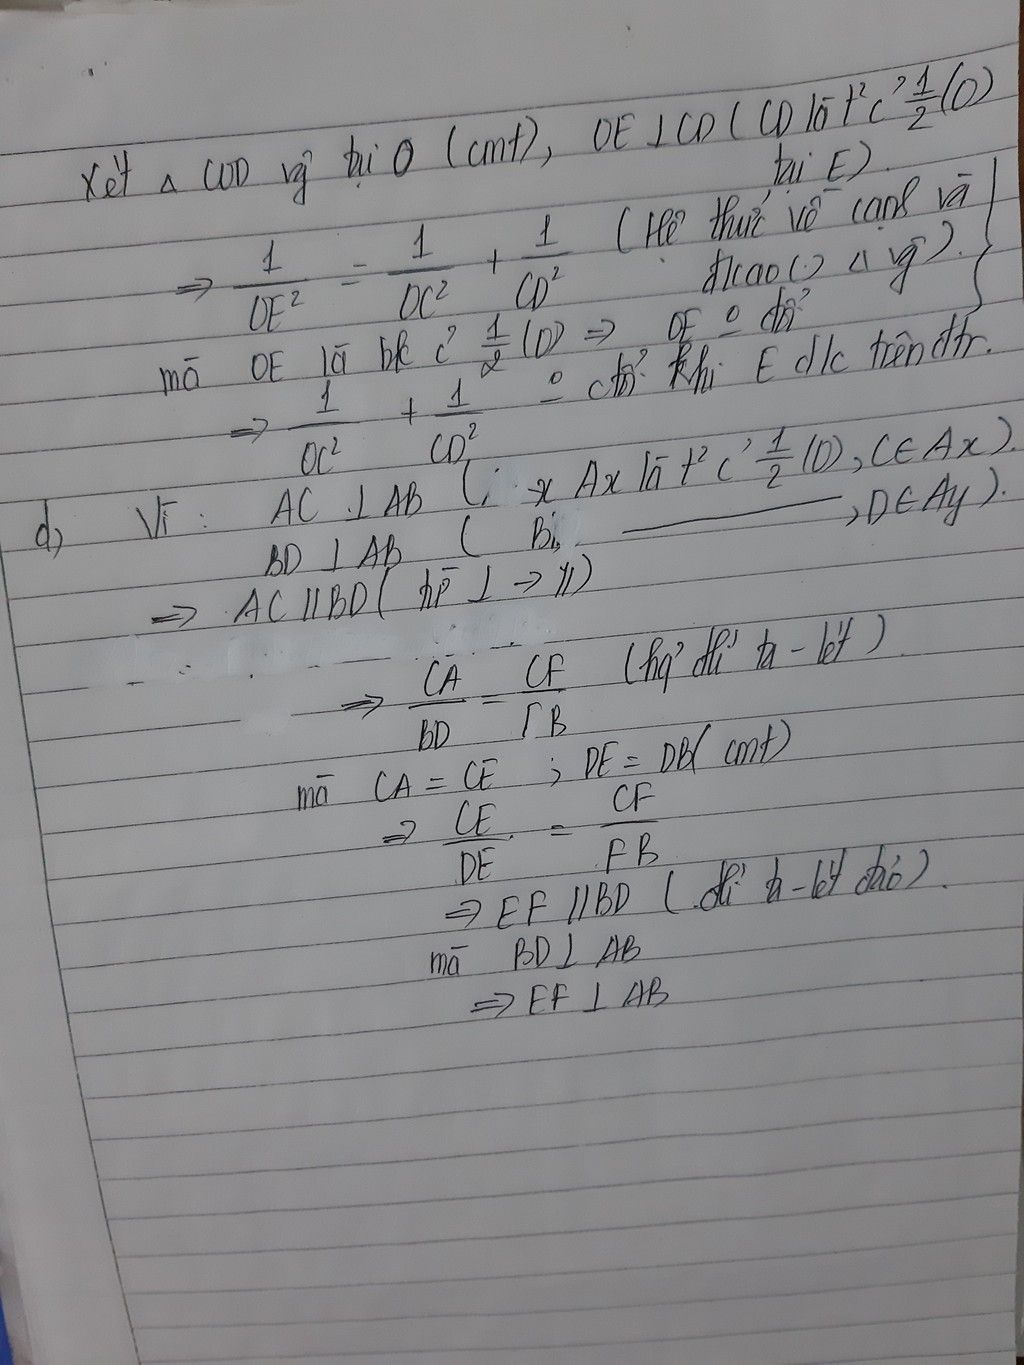 Xét △ COD vg̃ tại O (cmt), OE ⊥ CD ( CD là t² c' 1/2 (O)
tại E).
⇒ 1/OE² = 1/OC² + 1/CD² ( Hệ thức về cạnh và
đ/cao (.) △ vg̃ ).
mà OE là bk c' 1/2 (O) ⇒ OE = đổi
⇒ 1/OC² + 1/CD² = đổi khi E d/c trên đtr.
d, Vì : AC ⊥ AB ( Ax là t² c' 1/2 (O), C ∈ Ax ).
BD ⊥ AB ( B ———, D ∈ Ay ).
⇒ AC // BD ( ⊥ → // )
⇒ CA/BD = CF/FB (hq' đl' ta - lét )
mà CA = CE ; DE = DB ( cmt)
⇒ CE/DE = CF/FB
⇒ EF // BD ( đl' ta - lét đảo ).
mà BD ⊥ AB
⇒ EF ⊥ AB